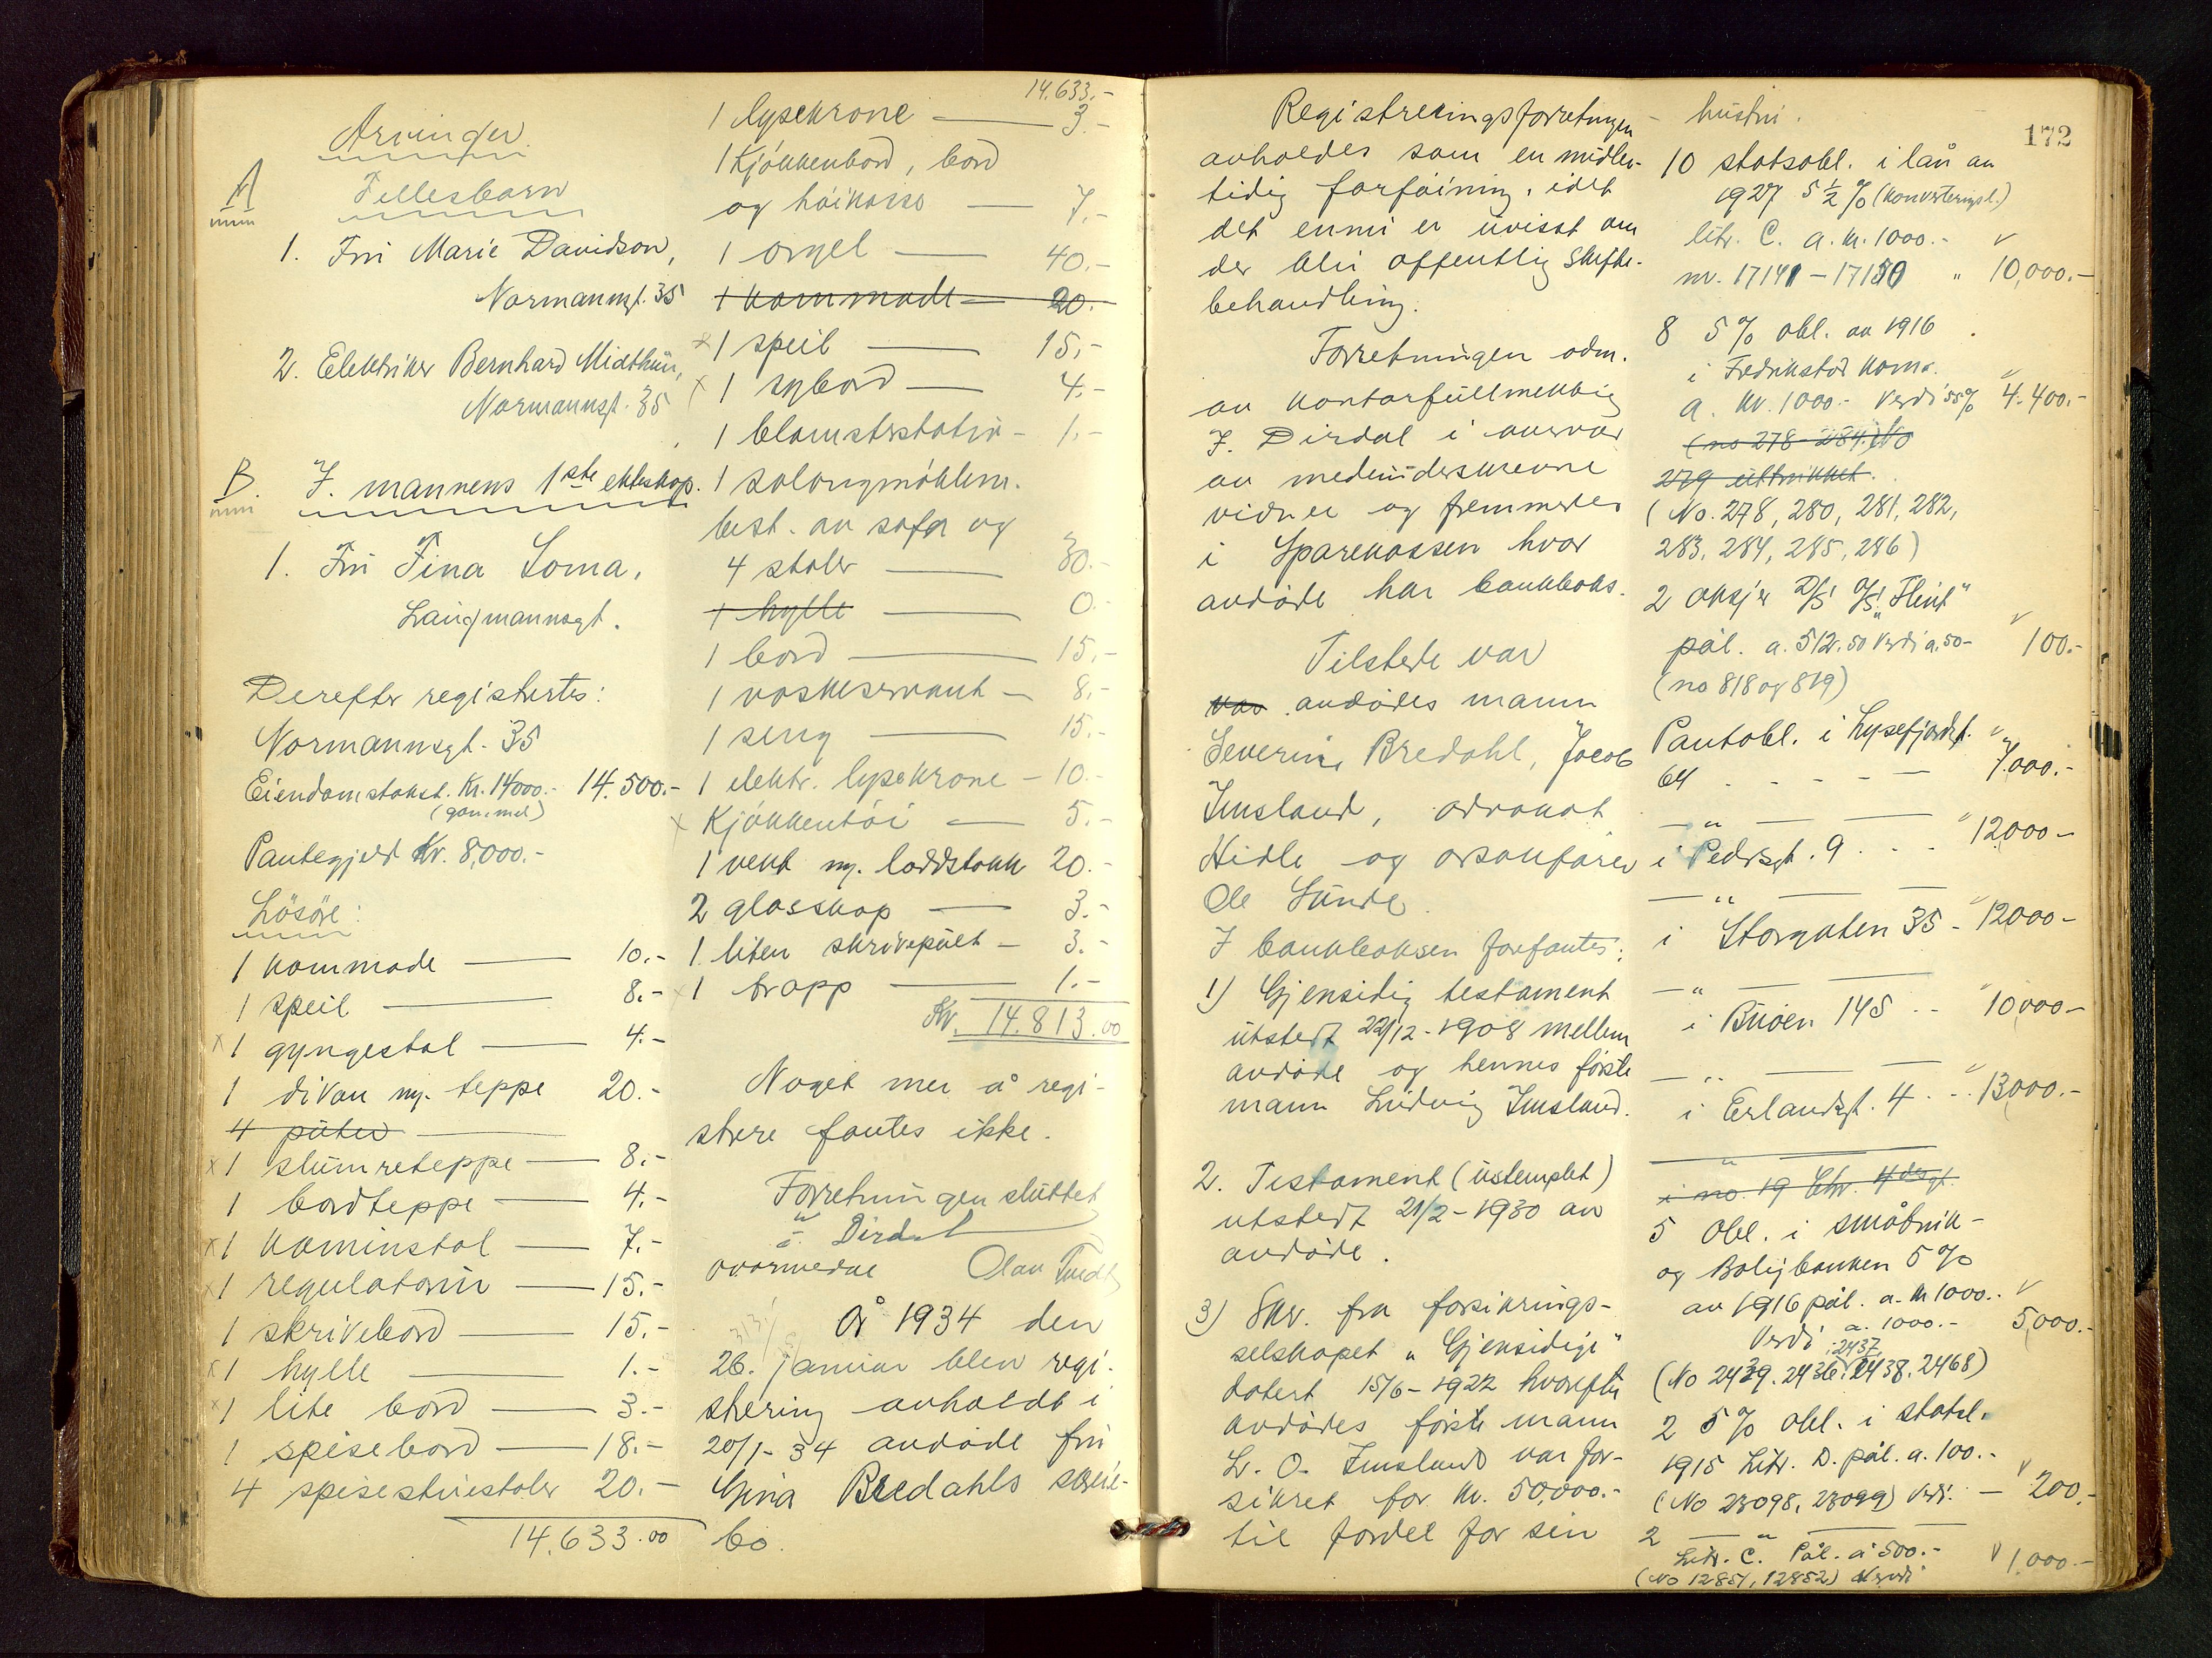 Arvinger.
A
Fellesbarn
1. Frú Marie Davidson,
Normannsgt. 35
2. Elektriker Bernhard Midthún,
Normannsgt. 35
B. I. mannens 1ste ekteskap.
1. Frú Tina Soma,
Laugmannsgt.
Derefter registertes:
Normannsgt. 35
Eiendomstakst. Kr. 14000.- 14.500.-
(gammel)
Pantegjeld Kr. 8,000.-
Lösöre:
1 kommode 10.-
1 speil 8.-
x 1 gyngestol 4.-
1 divan m/. teppe 20.-
4 púter
x 1 slúmreteppe 8.-
1 bordteppe 4.-
x 1 kaminstol 7.-
x 1 regulatorúr 15.-
1 skrivebord 15.-
x 1 hylle 1.-
x 1 lite bord 3.-
1 spisebord 18.-
4 spisestúestoler 20.-
14.633.00
14.633.-
1 lysekrone 3.-
1 Kjökkenbord, bord
og höikasse 7.-
1 orgel 40.-
1 kommode 20.-
x 1 speil 15.-
x 1 sybord 4.-
1 blomsterstativ - 1.-
1 salongmöblem.
best. av sofa og
4 stoler 30.-
1 hylle 0.-
1 bord 15.-
1 vaskeservant - 8.-
1 seng 15.-
1 elektr. lysekrone - 10.-
x Kjökkentöi 5.-
1 vekt m/. loddstokk 20.-
2 glasskap 3.-
1 liten skrivepúlt - 3.-
x 1 trapp 1.-
Kr. 14.813.00
Noget mer å regi-
strere fantes ikke.
Forretningen slúttet
J. Dirdal
Olav
År 1934 den
26. januar blev regi-
strering avholdt i
20/1-34 avdöde frú
Gina Bredahls
bo.
172
Registreringsforretningen
avholdes som en midler-
tidig forföining, idet
det ennú er úvisst om
der blir offentlig skifte-
behandling.
Forretningen adm.
av kontorfúllmektig
J. Dirdal i nærvær
av medúnderskrevne
vidner og fremmedes
i Sparekassen hvor
avdöde har bankboks.
Tilstede var
var avdödes mann
Severin Bredahl, Jacob
Imsland, advokat
Hidle og
Ole Súnde.
I bankboksen forefantes:
1) Gjensidig testament
útstedt 22/12-1908 mellem
avdöde og hennes förste
mann Lúdvig Imsland.
2. Testament (ústemplet)
utstedt 21/2-1930 av
avdöde.
3) Skr. fra forsikrings-
selskapet "Gjensidige"
datert 15/6-1922 hvorefter
avdödes förste mann
L. O. Imsland var for-
sikret for kr. 50,000.-
til fordel for sin
hústrú.
10 statsobl. i lån av
1927 5 1/2 % (konverteringsl.)
litr. C. a. kr. 1000.-
nr. 17141 - 17150 " 10,000.-
8 5% obl. av 1916
i Fredrikstad Kom.
a. kr. 1000.- Verdi 55% 4.400.-
(no 278-284.) No
279 úttrúkket.
(No. 278, 280, 281, 282,
283, 284, 285, 286)
2 aksjer D/S A/S "Flint"
pål. a. 512.50 Verdi a. 50- 100.-
(no 818 og 819)
Pantobl. i Lysefjordgt.
64 - - - - 7,000.-
- " -
i Pedersgt. 9 . . . 12000-
- " -
i Storgaten 35 - 12000-
- " -
i Búöen 145 - - 10000-
- " -
i Erlandsgt. 4 - - 13000.-
"
i no. 19 Chr. 4des gt.
5 obl. i småbrúk-
og Boligbanken 5%
av 1916 pål. a. kr 1000.-
Verdi a. 1000.- 5,000.-
2437,
(No 2439. 2436. 2438. 2468)
2 5% obl. i statsl.
1915 Litr. D. pål. a. 100.-
(No 23098, 23099) Verdi. - 200.-
2 - " -
Litr. C. Pål. á 500.-
(No 12851, 12852) Verdi 1,000.-